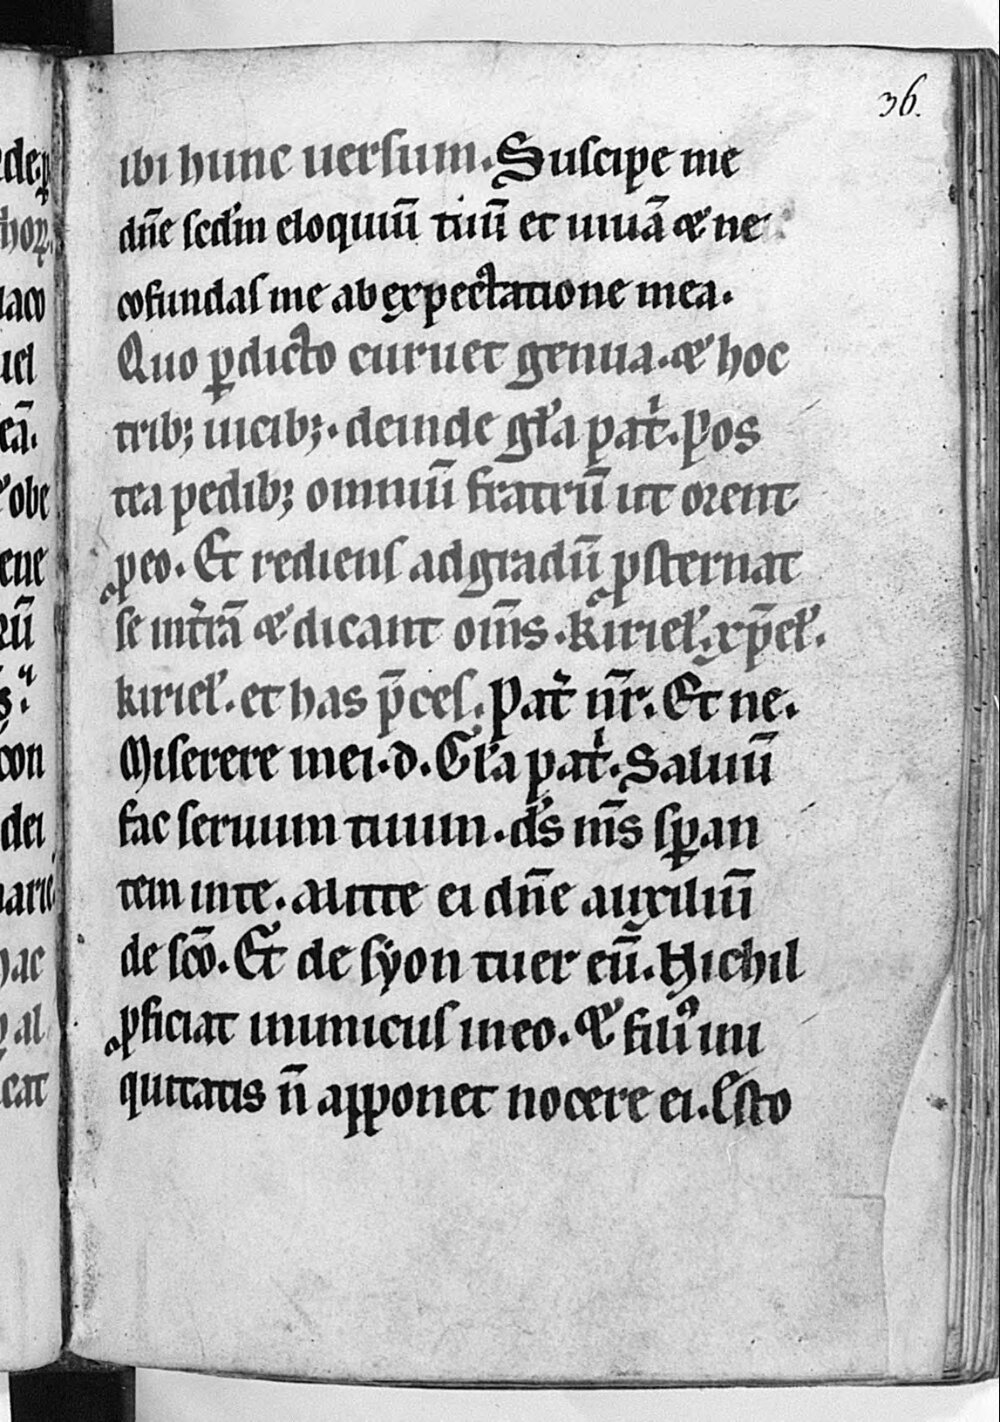 36.
ibi hunc uersum. Suscipe me
dn̄e scd'm eloquiū tuū et uiuā & ne
cofundas me ab expectatione mea.
Quo ꝑdicto curuet genua. & hoc
trib; uicib;. deinde gl'a pat'. Pos
tea pedib; omniū fratrū ut orent
ꝓ eo. Et rediens ad gradū ꝓsternat
se in t'rā & dicant om̄s. kiriel'. xp̄el'.
kiriel'. et has p̄ces. Pat' n̄r. Et ne.
Miserere mei. d. Gl'a pat'. Saluū
fac seruum tuum. d's m̄s sꝑan
tem in te. Mitte ei dn̄e auxiliū
de sc̄o. Et de syon tuer eū. Nichil
ꝓficiat inimicus in eo. & filiꝰ ini
quitatis n̄ apponet nocere ei. Esto